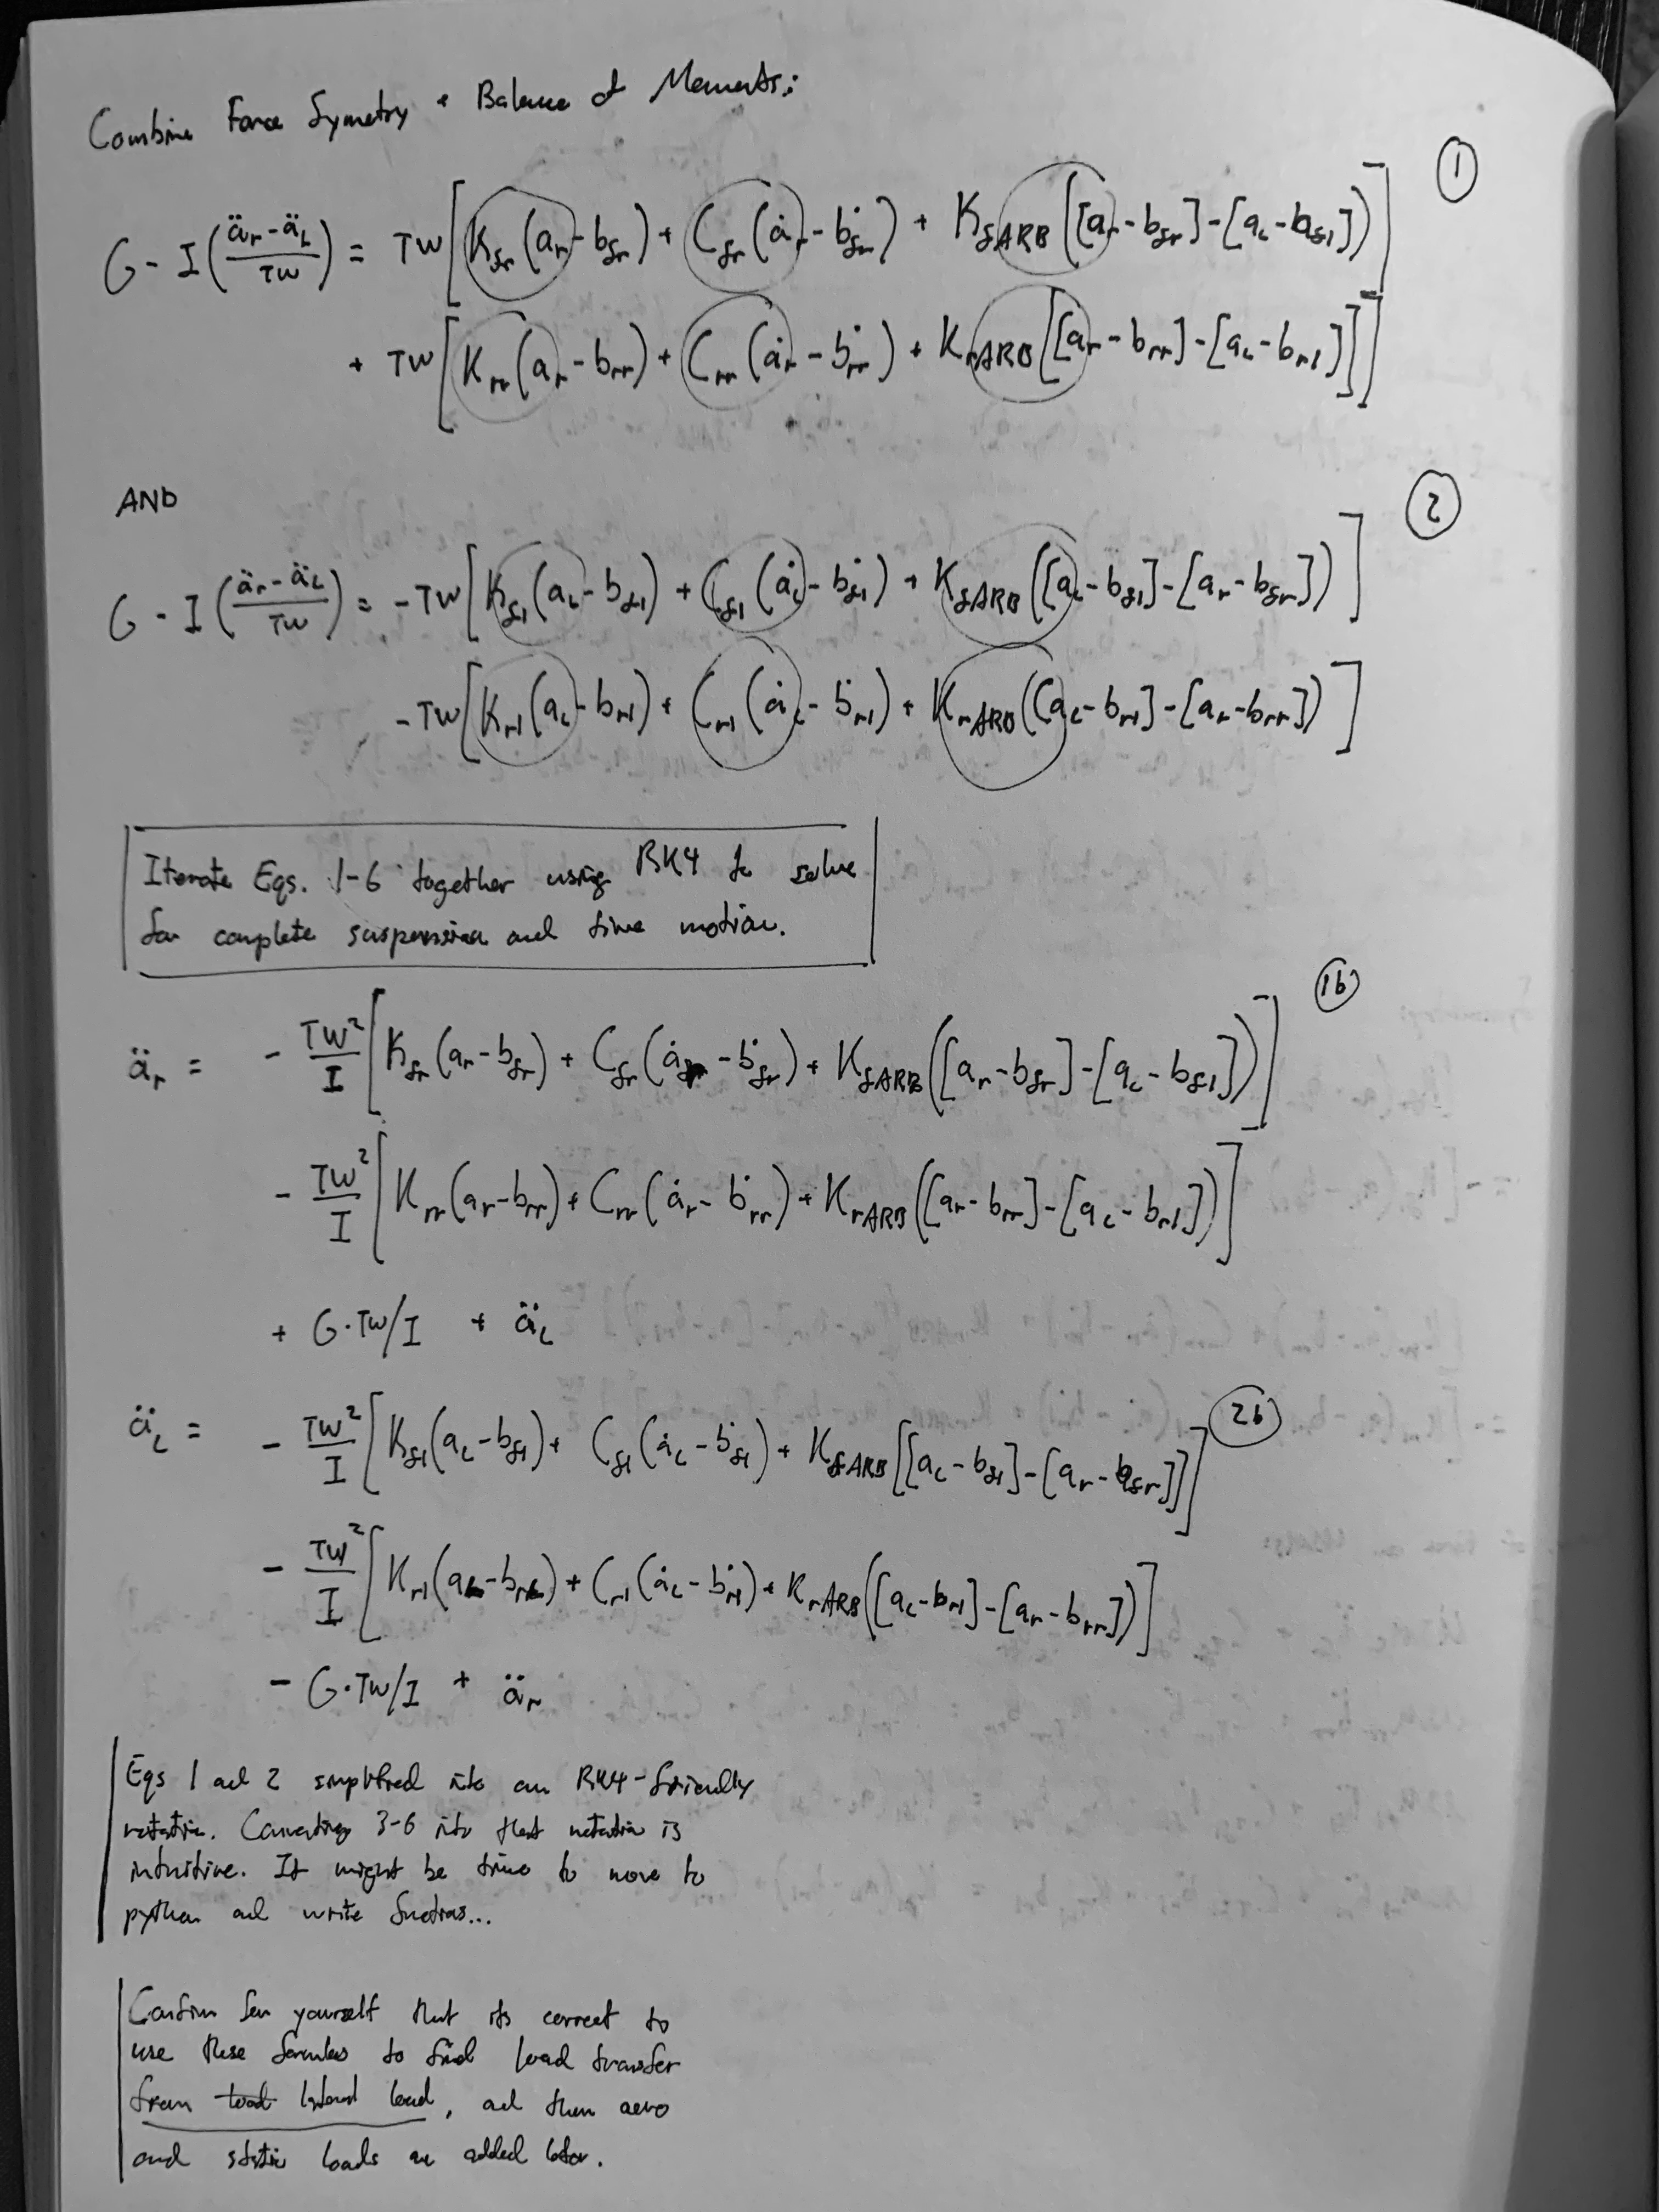 Combine Force Symetry + Balance of Moments:
①
G - I((ä_r - ä_L)/TW) = TW[K_fr(a_r - b_fr) + C_fr(ȧ_r - ḃ_fr) + K_fARB([a_r - b_fr] - [a_L - b_fl])]
+ TW[K_rr(a_r - b_rr) + C_rr(ȧ_r - ḃ_rr) + K_rARB[[a_r - b_rr] - [a_L - b_rl]]]
AND
②
G - I((ä_r - ä_L)/TW) = -TW[K_fl(a_L - b_fl) + C_fl(ȧ_L - ḃ_fl) + K_fARB([a_L - b_fl] - [a_r - b_fr])]
-TW[K_rl(a_L - b_rl) + C_rl(ȧ_L - ḃ_rl) + K_rARB([a_L - b_rl] - [a_r - b_rr])]
Iterate Eqs. 1-6 together using RK4 to solve
for complete suspension and time motion.
(1b)
ä_r = - TW²/I [K_fr(a_r - b_fr) + C_fr(ȧ_r - ḃ_fr) + K_fARB([a_r - b_fr] - [a_L - b_fl])]
- TW²/I [K_rr(a_r - b_rr) + C_rr(ȧ_r - ḃ_rr) + K_rARB([a_r - b_rr] - [a_L - b_rl])]
+ G·TW/I + ä_L
(2b)
ä_L = - TW²/I [K_fl(a_L - b_fl) + C_fl(ȧ_L - ḃ_fl) + K_fARB[[a_L - b_fl] - [a_r - b_fr]]]
- TW²/I [K_rl(a_L - b_rL) + C_rl(ȧ_L - ḃ_rl) + K_rARB([a_L - b_rl] - [a_r - b_rr])]
- G·TW/I + ä_r
Eqs 1 and 2 simplified into an RK4-friendly
notation. Converting 3-6 into that notation is
intuitive. It might be time to move to
python and write functions...
Confirm for yourself that its correct to
use these formulas to find load transfer
from lateral load, and then aero
and static loads are added later.